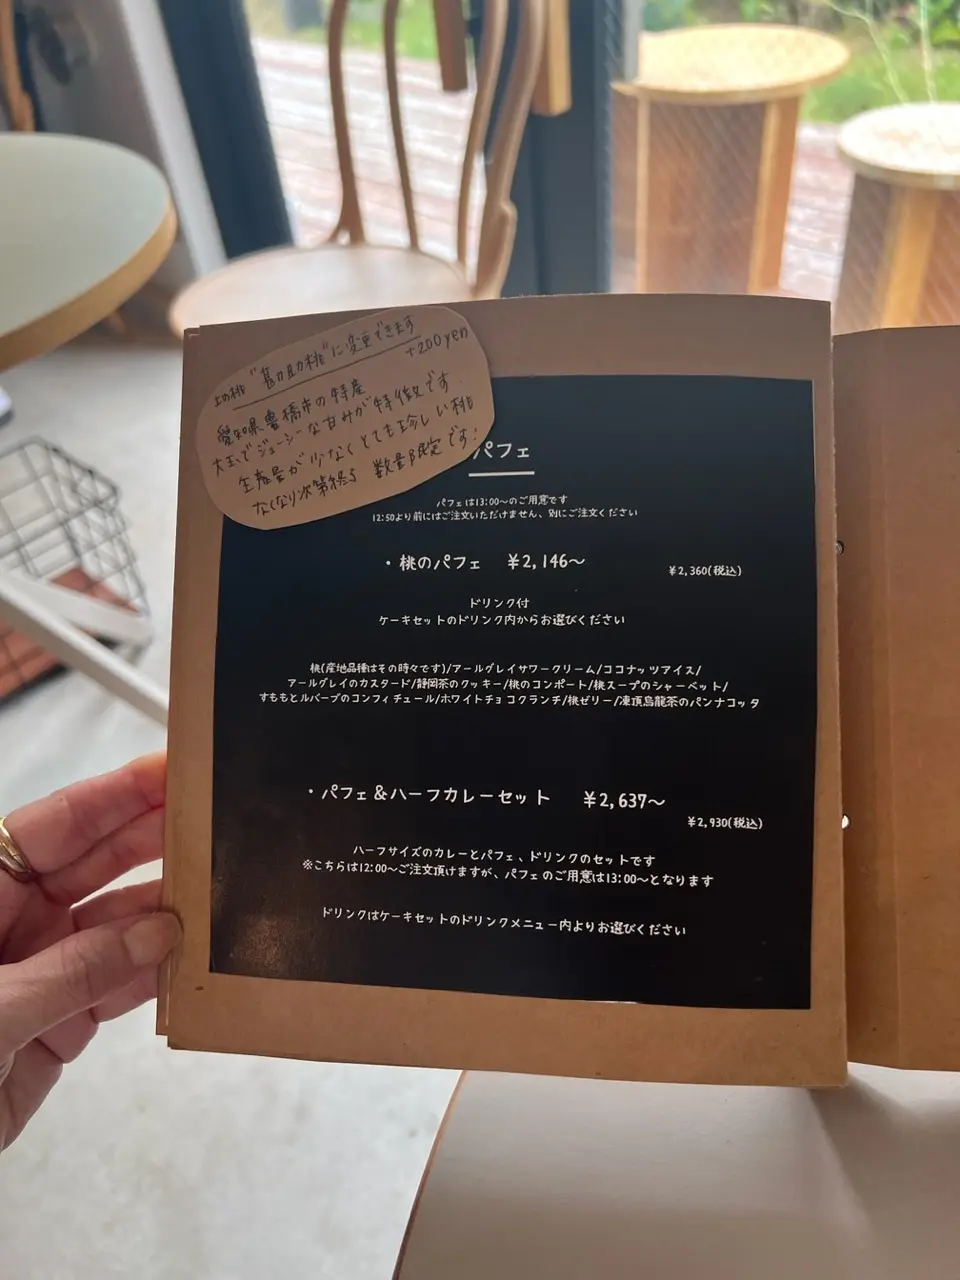 上の桃 "勘助桃"に変更できます
+200yen
愛知県豊橋市の特産
大玉でジューシーな甘みが特徴です。
生産量が少なくとても珍しい桃
なくなり次第終了 数量限定です!
パフェ
パフェは13:00〜のご用意です
12:50より前にはご注文いただけません、別にご注文ください
・桃のパフェ ¥2,146〜
¥2,360(税込)
ドリンク付
ケーキセットのドリンク内からお選びください
桃(産地品種はその時々です)/アールグレイサワークリーム/ココナッツアイス/
アールグレイのカスタード/静岡茶のクッキー/桃のコンポート/桃スープのシャーベット/
すももとルバーブのコンフィチュール/ホワイトチョコクランチ/桃ゼリー/凍頂烏龍茶のパンナコッタ
・パフェ&ハーフカレーセット ¥2,637〜
¥2,930(税込)
ハーフサイズのカレーとパフェ、ドリンクのセットです
※こちらは12:00〜ご注文頂けますが、パフェのご用意は13:00〜となります
ドリンクはケーキセットのドリンクメニュー内よりお選びください